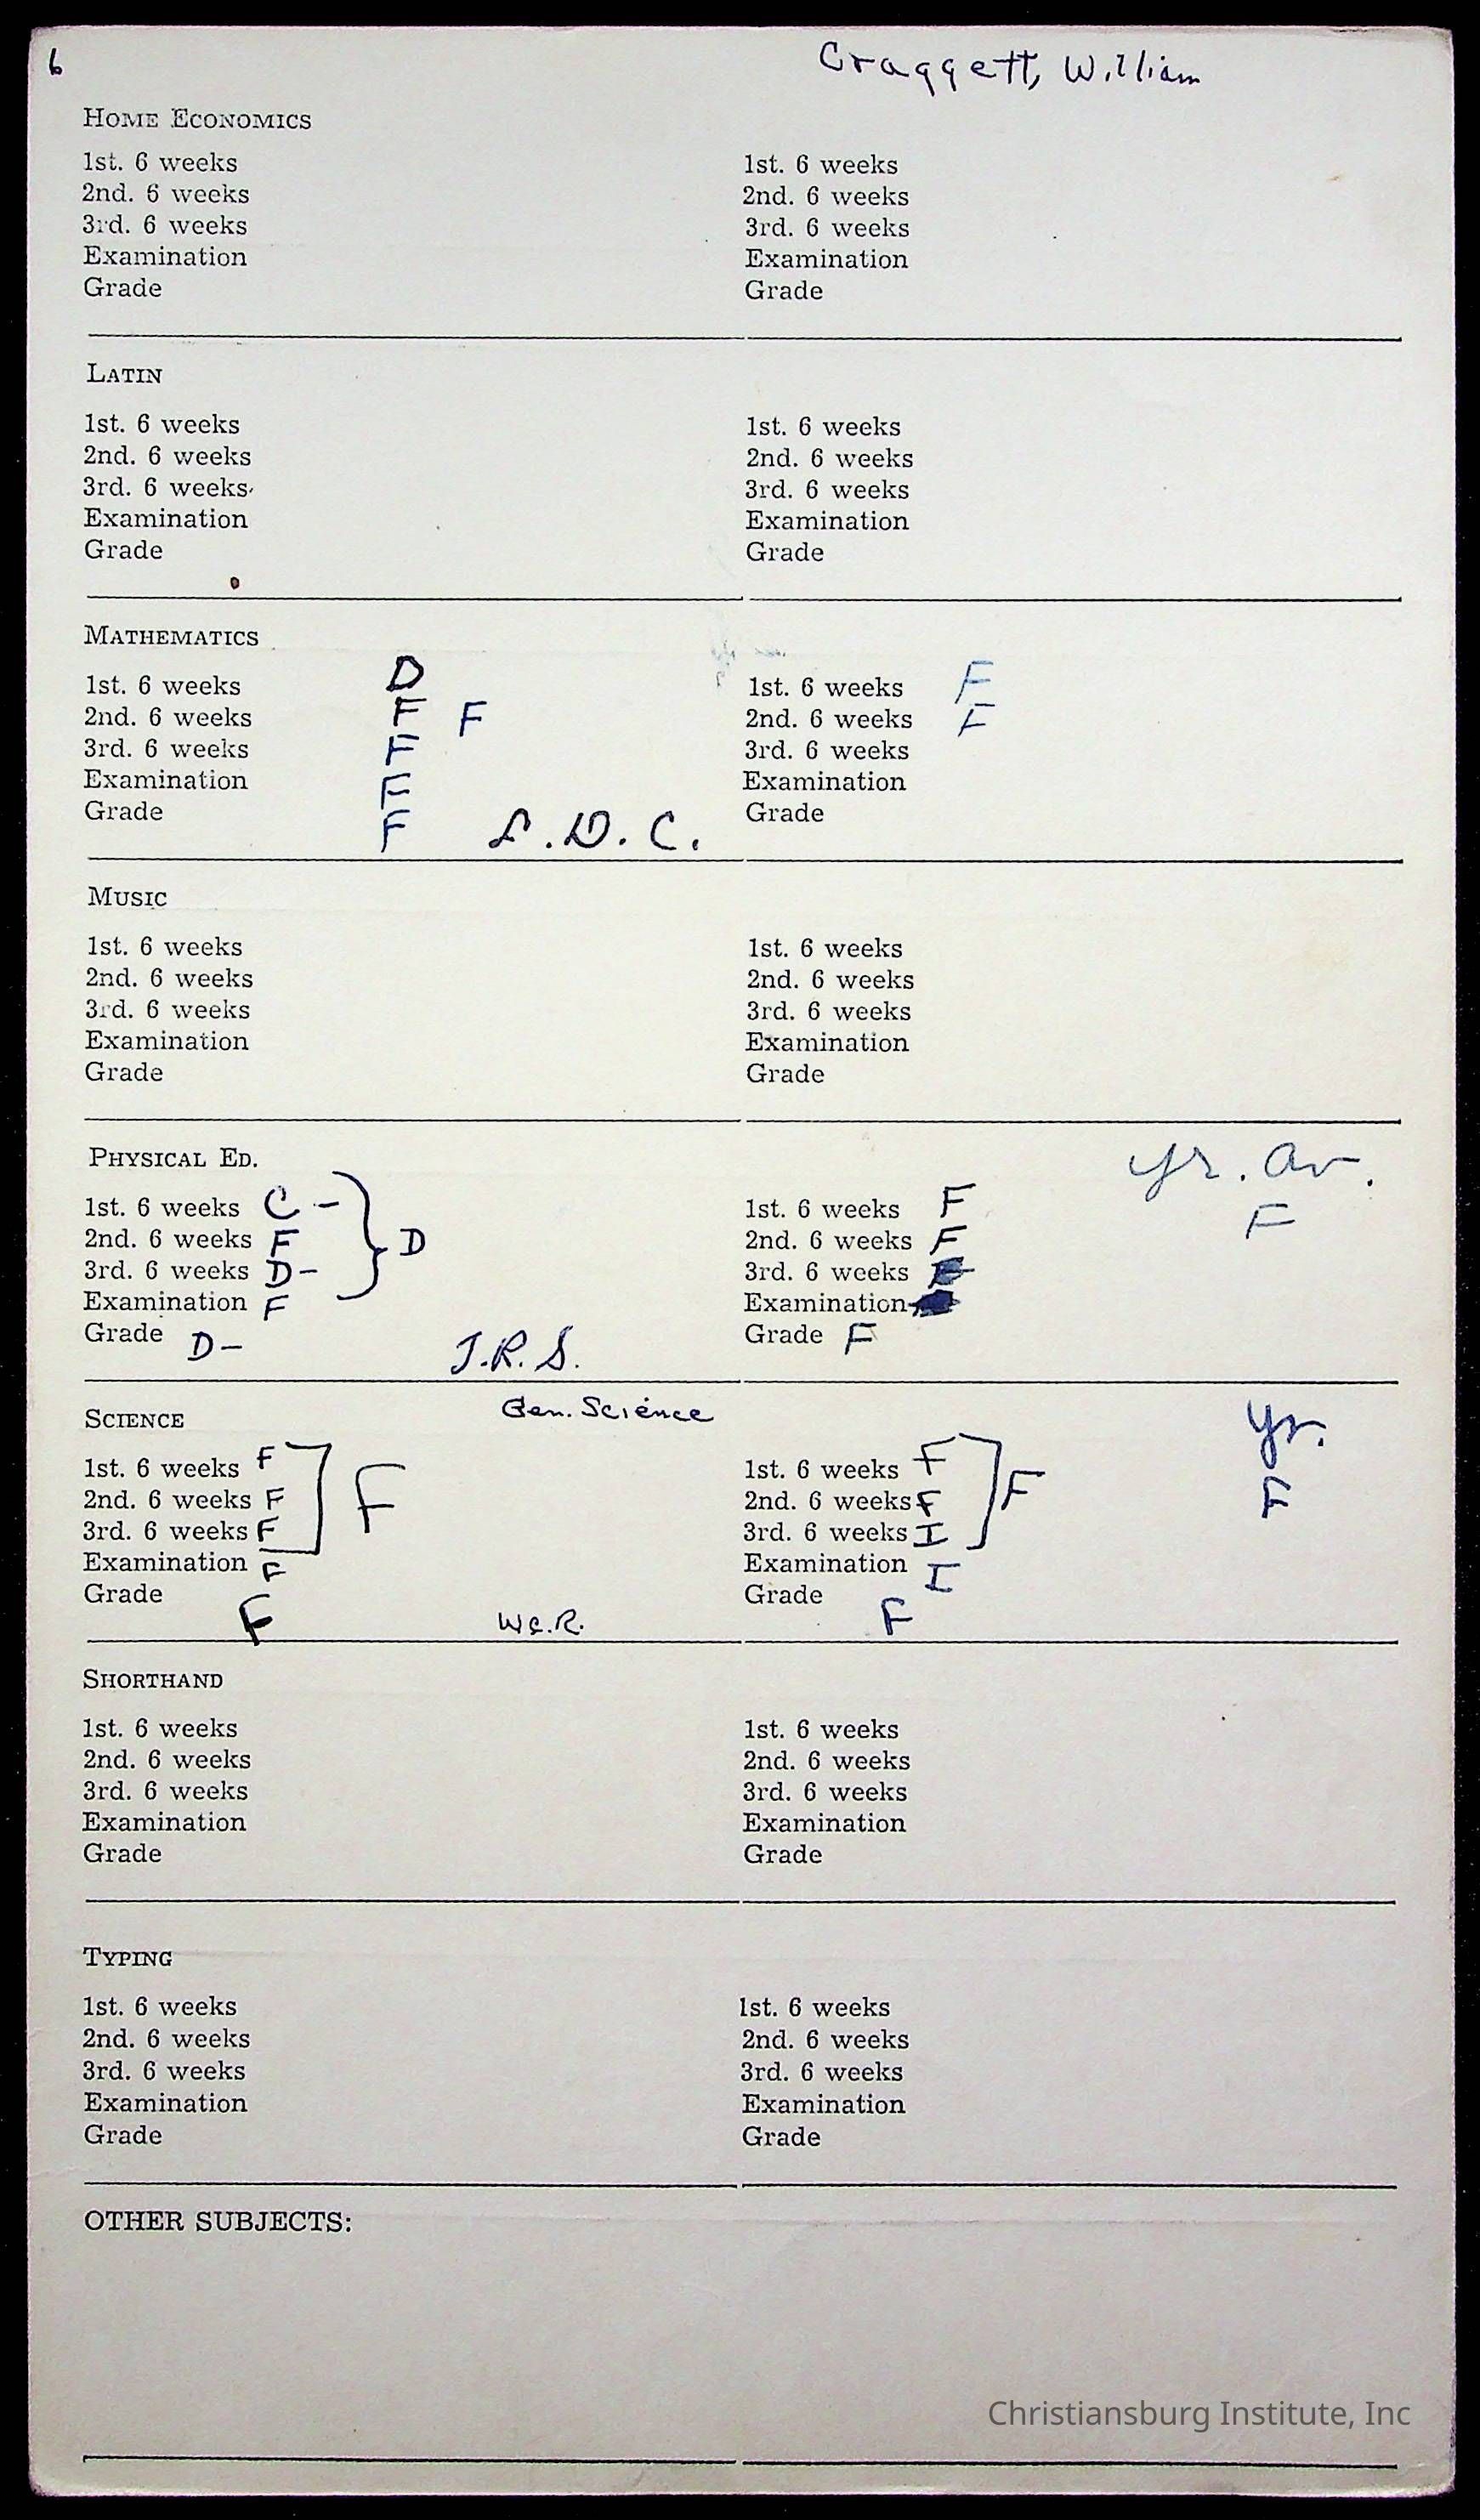 6 Craggett, William
HOME ECONOMICS
1st. 6 weeks 1st. 6 weeks
2nd. 6 weeks 2nd. 6 weeks
3rd. 6 weeks 3rd. 6 weeks
Examination Examination
Grade Grade
LATIN
1st. 6 weeks 1st. 6 weeks
2nd. 6 weeks 2nd. 6 weeks
3rd. 6 weeks 3rd. 6 weeks
Examination Examination
Grade Grade
MATHEMATICS
1st. 6 weeks D 1st. 6 weeks F
2nd. 6 weeks F F 2nd. 6 weeks F
3rd. 6 weeks F 3rd. 6 weeks
Examination F Examination
Grade F S.D.C. Grade
MUSIC
1st. 6 weeks 1st. 6 weeks
2nd. 6 weeks 2nd. 6 weeks
3rd. 6 weeks 3rd. 6 weeks
Examination Examination
Grade Grade
PHYSICAL ED. yr. av.
1st. 6 weeks C - 1st. 6 weeks F F
2nd. 6 weeks F D 2nd. 6 weeks F
3rd. 6 weeks D- 3rd. 6 weeks
Examination F Examination
Grade D- J.R.S. Grade F
SCIENCE Gen. Science yr.
1st. 6 weeks F 1st. 6 weeks F
2nd. 6 weeks F F 2nd. 6 weeks F F F
3rd. 6 weeks F 3rd. 6 weeks I
Examination F Examination I
Grade F W.E.R. Grade F
SHORTHAND
1st. 6 weeks 1st. 6 weeks
2nd. 6 weeks 2nd. 6 weeks
3rd. 6 weeks 3rd. 6 weeks
Examination Examination
Grade Grade
TYPING
1st. 6 weeks 1st. 6 weeks
2nd. 6 weeks 2nd. 6 weeks
3rd. 6 weeks 3rd. 6 weeks
Examination Examination
Grade Grade
OTHER SUBJECTS:
Christiansburg Institute, Inc